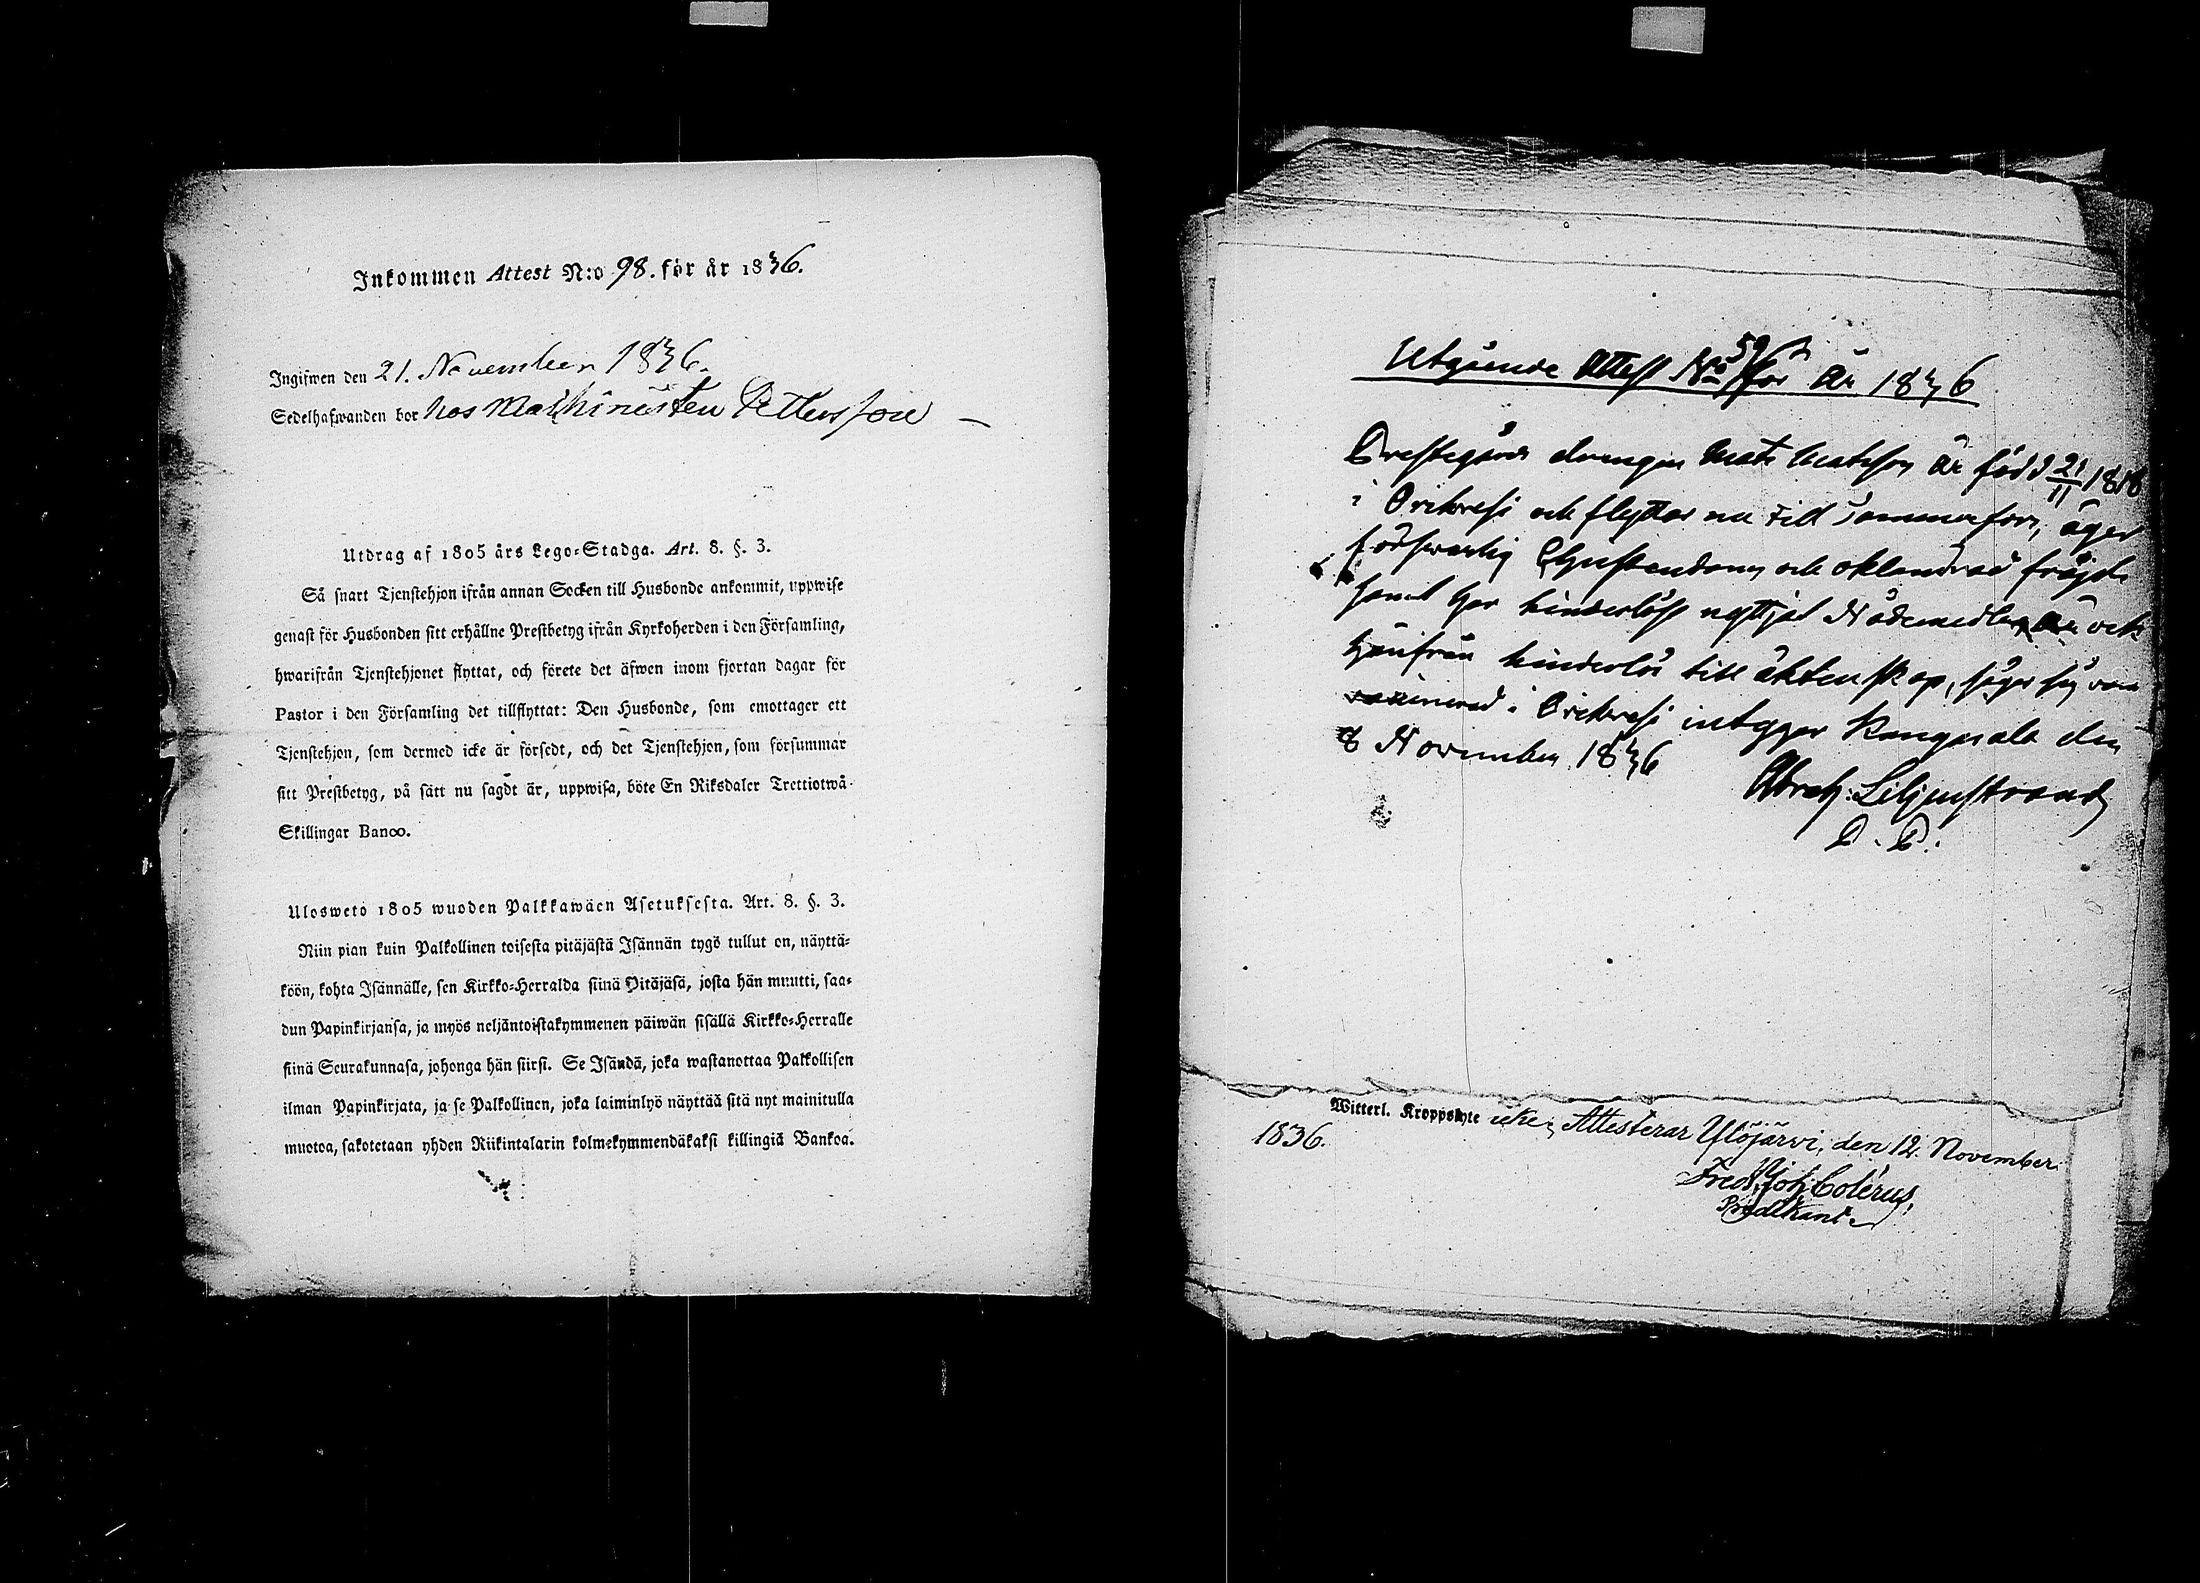 Inkommen Attest N:o 98. för år 1836.
Ingifwen den 21. November 1836.
Sedelhafwanden bor hos Machinisten Pettersson —
Utdrag af 1805 års Lego-Stadga. Art. 8. §. 3.
Så snart Tjenstehjon ifrån annan Socken till Husbonde ankommit, uppwise
genast för Husbonden sitt erhållne Prestbetyg ifrån Kyrkoherden i den Församling,
hwarifrån Tjenstehjonet flyttat, och förete det äfwen inom fjortan dagar för
Pastor i den Församling det tillflyttat: Den Husbonde, som emottager ett
Tjenstehjon, som dermed icke är försedt, och det Tjenstehjon, som försummar
sitt Prestbetyg, på sätt nu sagdt är, uppwisa, böte En Riksdaler Trettiotwå
Skillingar Banco.
Ulosweto 1805 wuoden Palkkawäen Asetuksesta. Art. 8. §. 3.
Niin pian kuin Palkollinen toisesta pitäjästä Isännän tygö tullut on, näyttä-
köön, kohta Isännälle, sen Kirkko-Herralda siinä Pitäjäsä, josta hän muutti, saa-
dun Papinkirjansa, ja myös neljäntoistakymmenen päiwän sisällä Kirkko-Herralle
siinä Seurakunnasa, johonga hän siirsi. Se Isändä, joka wastanottaa Palkollisen
ilman Papinkirjata, ja se Palkollinen, joka laiminlyö näyttää sitä nyt mainitulla
muotoa, sakotetaan yhden Riikintalarin kolmekymmendäkaksi killingiä Bankoa.
Utgående Attest No 59 för År 1836
Prestegårds drengen Mats Matsson är född 21/11 1818
i Orihvesi och flyttar nu till Tammerfors, äger
förswarlig Christendom och oklandrad frägd
samt har hinderlöst nyttjat Nådemedlen, är ock
härifrån hinderlös till äktenskap, säger sig vara
vaxinerad i Orihvesi intygar Kangasala den
8 November 1836
Abrah: Liljenstrand
P. P.
Witterl. Kroppslyte icke, Attesterar Ylöjärvi, den 12. November.
1836.
Fred. Joh. Colérus,
Predikant